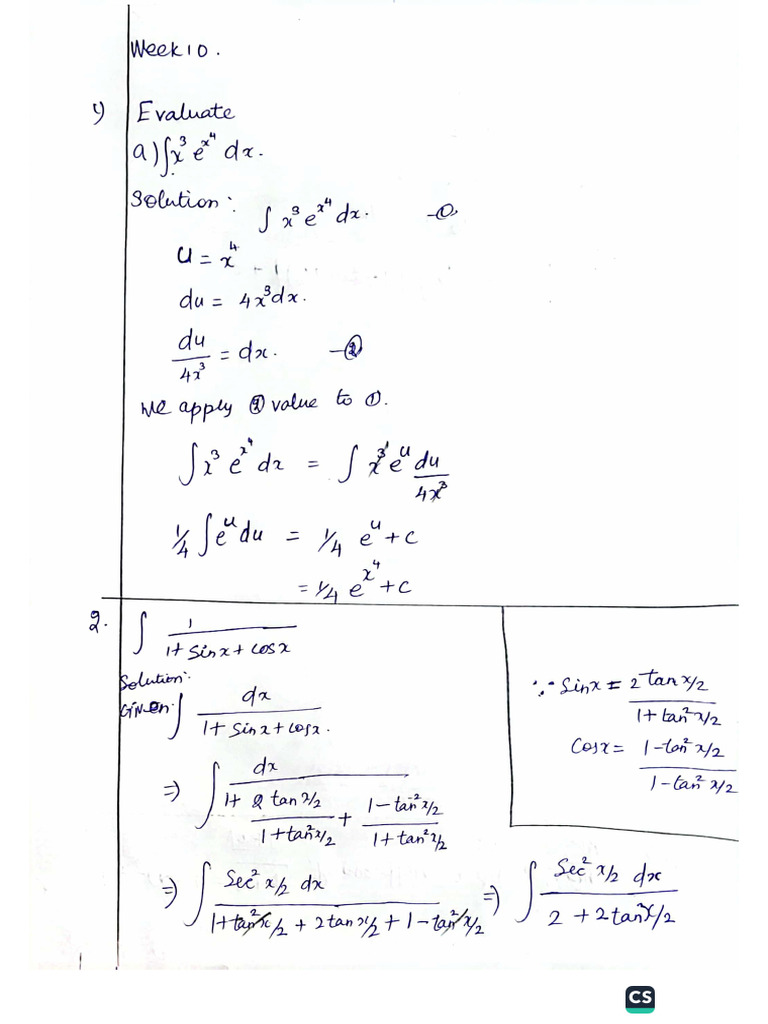 Week 10.
1) Evaluate
a) ∫x³ e^x⁴ dx.
Solution: ∫ x³ e^x⁴ dx. -①
u = x⁴
du = 4x³dx.
du/4x³ = dx. -②
we apply ② value to ①.
∫x³ e^x⁴ dx = ∫ x³ e^u du/4x³
1/4 ∫e^u du = 1/4 e^u + c
= 1/4 e^x⁴ + c
2. ∫ 1/(1 + sinx + cosx)
Solution:
Given ∫ dx/(1 + sinx + cosx).
∵ Sinx = 2 tan x/2 / (1 + tan² x/2)
Cosx = (1 - tan² x/2) / (1 - tan² x/2)
⇒ ∫ dx/(1 + 2 tan x/2 / (1 + tan² x/2) + (1 - tan² x/2)/(1 + tan² x/2))
⇒ ∫ Sec² x/2 dx / (1 + tan² x/2 + 2 tan x/2 + 1 - tan² x/2) ⇒ ∫ Sec² x/2 dx / (2 + 2 tan x/2)
CS